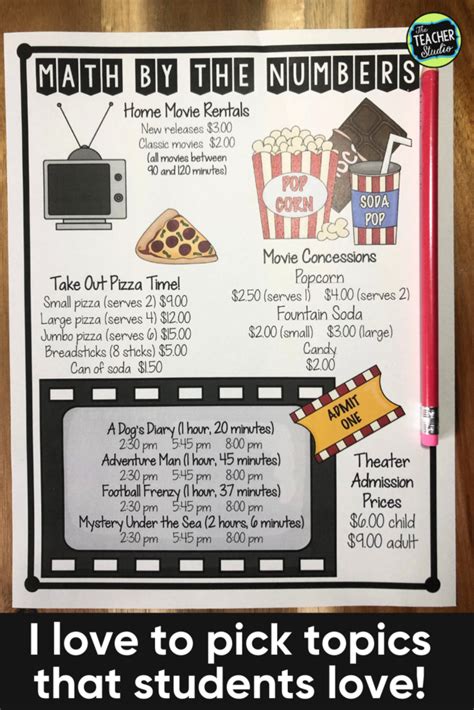 The
TEACHER
Studio
MATH BY THE NUMBERS
Home Movie Rentals
New releases $3.00
Classic movies $2.00
(all movies between
90 and 120 minutes)
POP
CORN
SODA
POP
Movie Concessions
Popcorn
$2.50 (serves 1) $4.00 (serves 2)
Fountain Soda
$2.00 (small) $3.00 (large)
Candy
$2.00
Take Out Pizza Time!
Small pizza (serves 2) $9.00
Large pizza (serves 4) $12.00
Jumbo pizza (serves 6) $15.00
Breadsticks (8 sticks) $5.00
Can of soda $1.50
ADMIT
ONE
A Dog's Diary (1 hour, 20 minutes)
2:30 pm 5:45 pm 8:00 pm
Adventure Man (1 hour, 45 minutes)
2:30 pm 5:45 pm 8:00 pm
Football Frenzy (1 hour, 37 minutes)
2:30 pm 5:45 pm 8:00 pm
Mystery Under the Sea (2 hours, 6 minutes)
2:30 pm 5:45 pm 8:00 pm
Theater
Admission
Prices
$6.00 child
$9.00 adult
I love to pick topics
that students love!